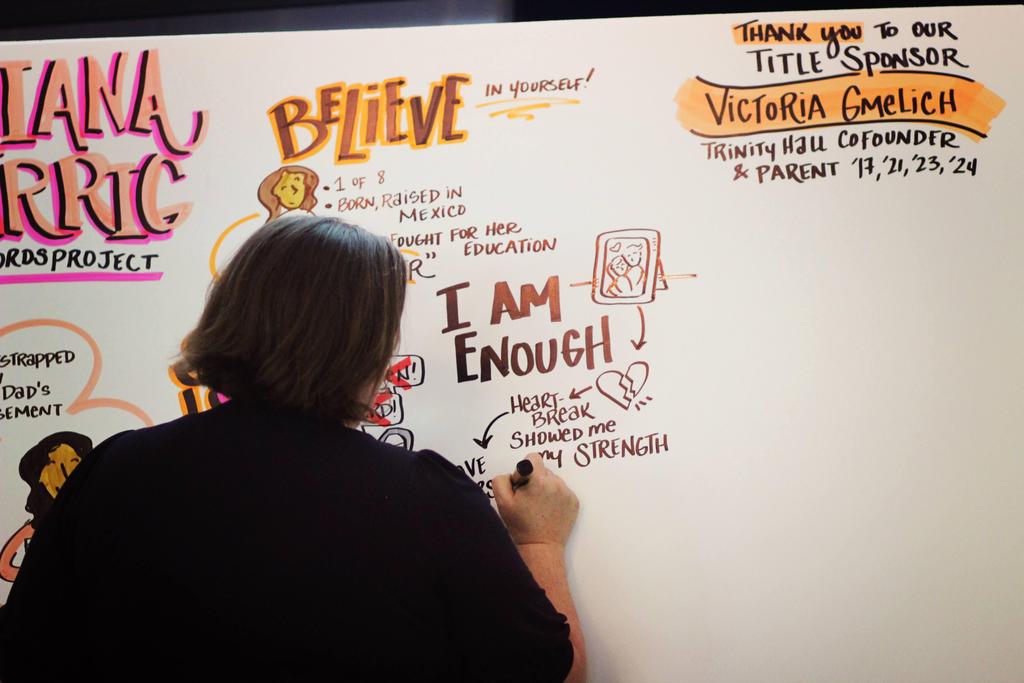 IANA,
RRIG
ORDSPROJECT
BELIEVE
IN YOURSELF!
• 1 OF 8
• BORN, RAISED IN
MEXICO
FOUGHT FOR HER
EDUCATION
R"
I AM
ENOUGH
HEART-
BREAK
SHOWED me
my STRENGTH
THANK you TO OUR
TITLE SPONSOR
VICTORIA GMELICH
TRINITY HALL COFOUNDER
& PARENT '17, '21, '23, '24
STRAPPED
DAD'S
SEMENT
N!
D!
OVE